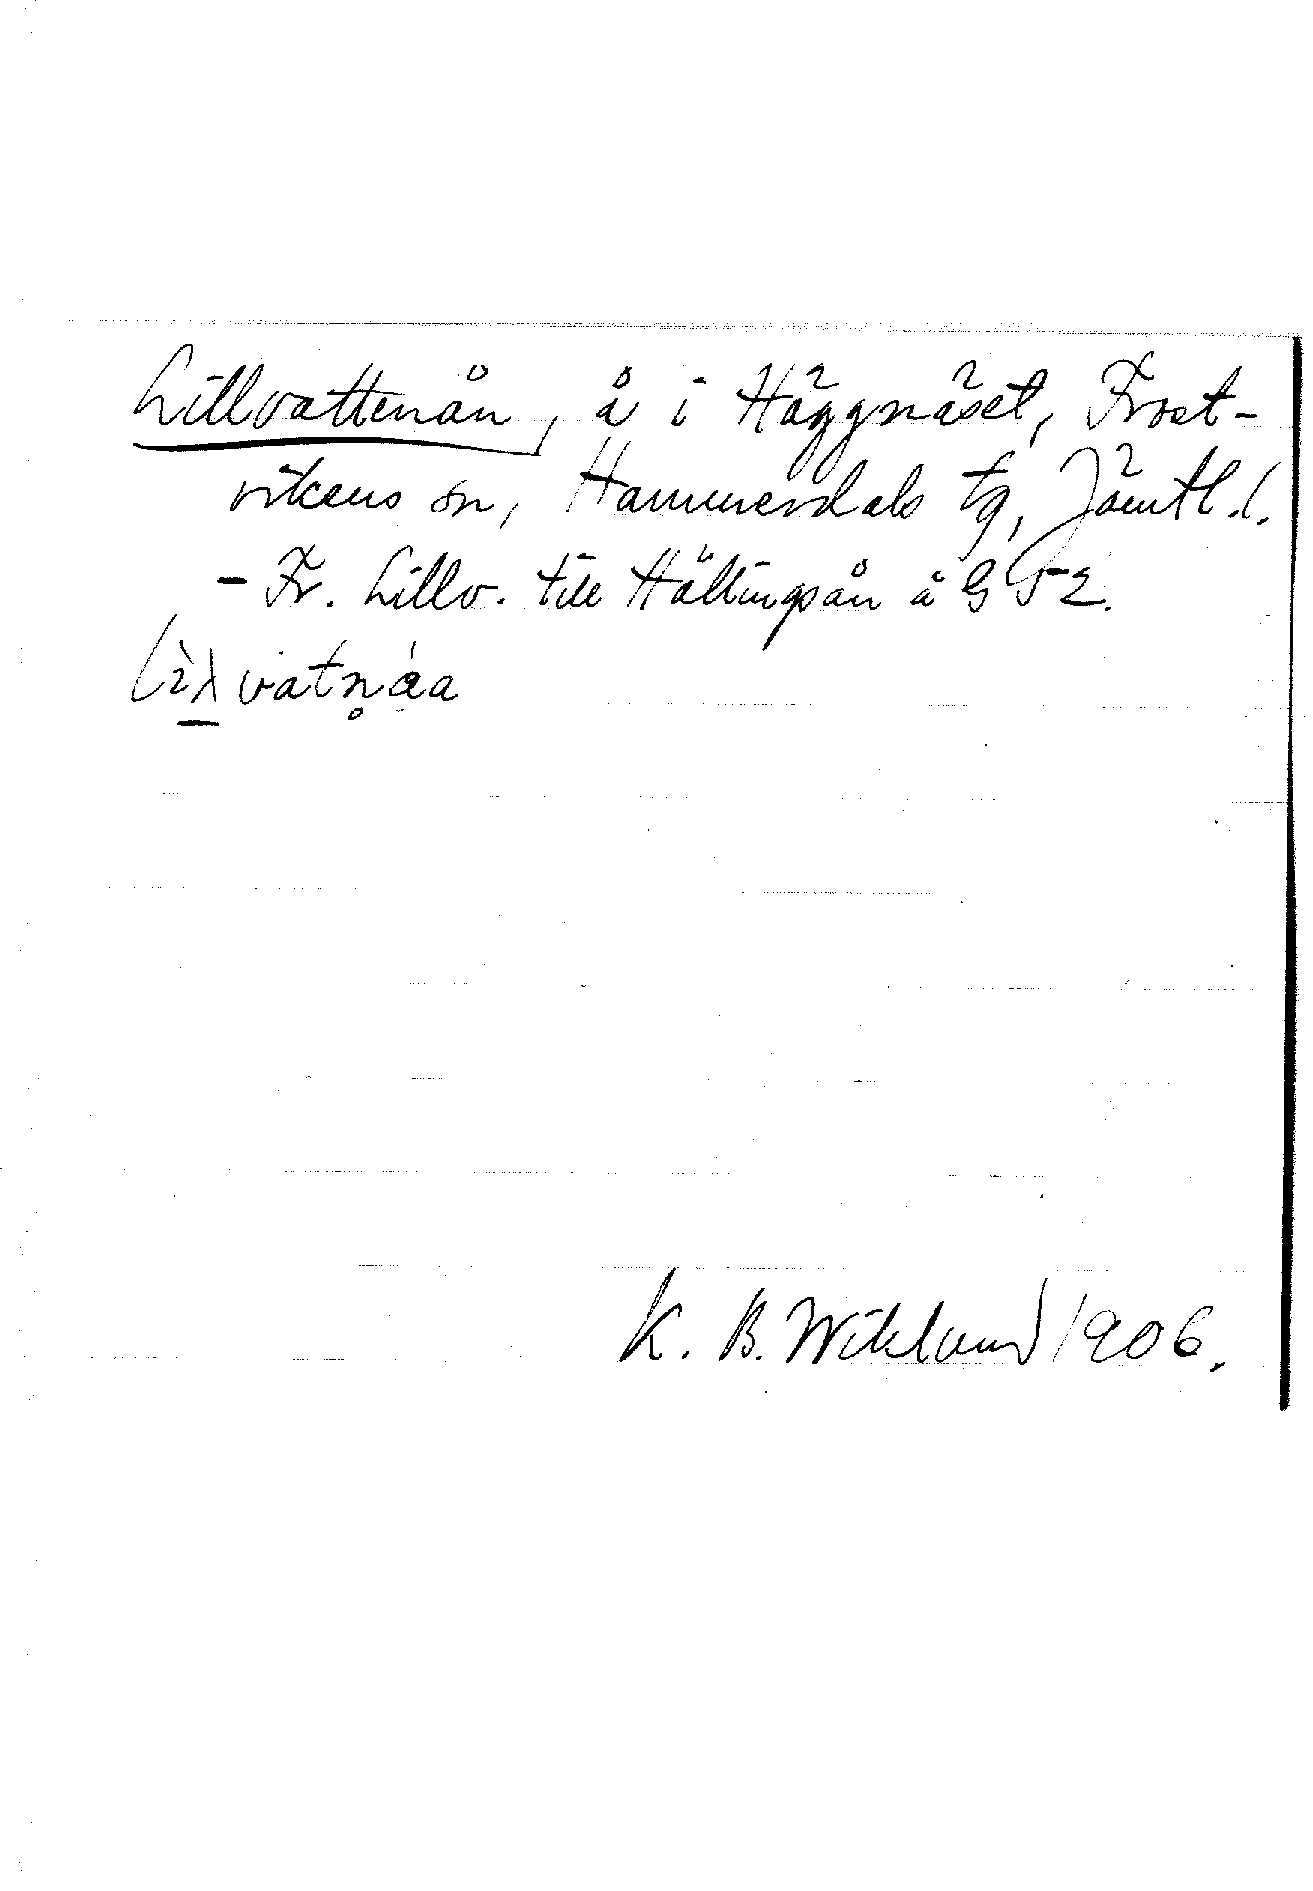 Lillvattenån, å i Häggnäset, Frost-
vikens sn, Hammerdals tg, Jämtl. l.
- Fr. Lillv. till Hällingsån å G 52.
lìλvatn̥áa
K. B. Wiklund 1906.